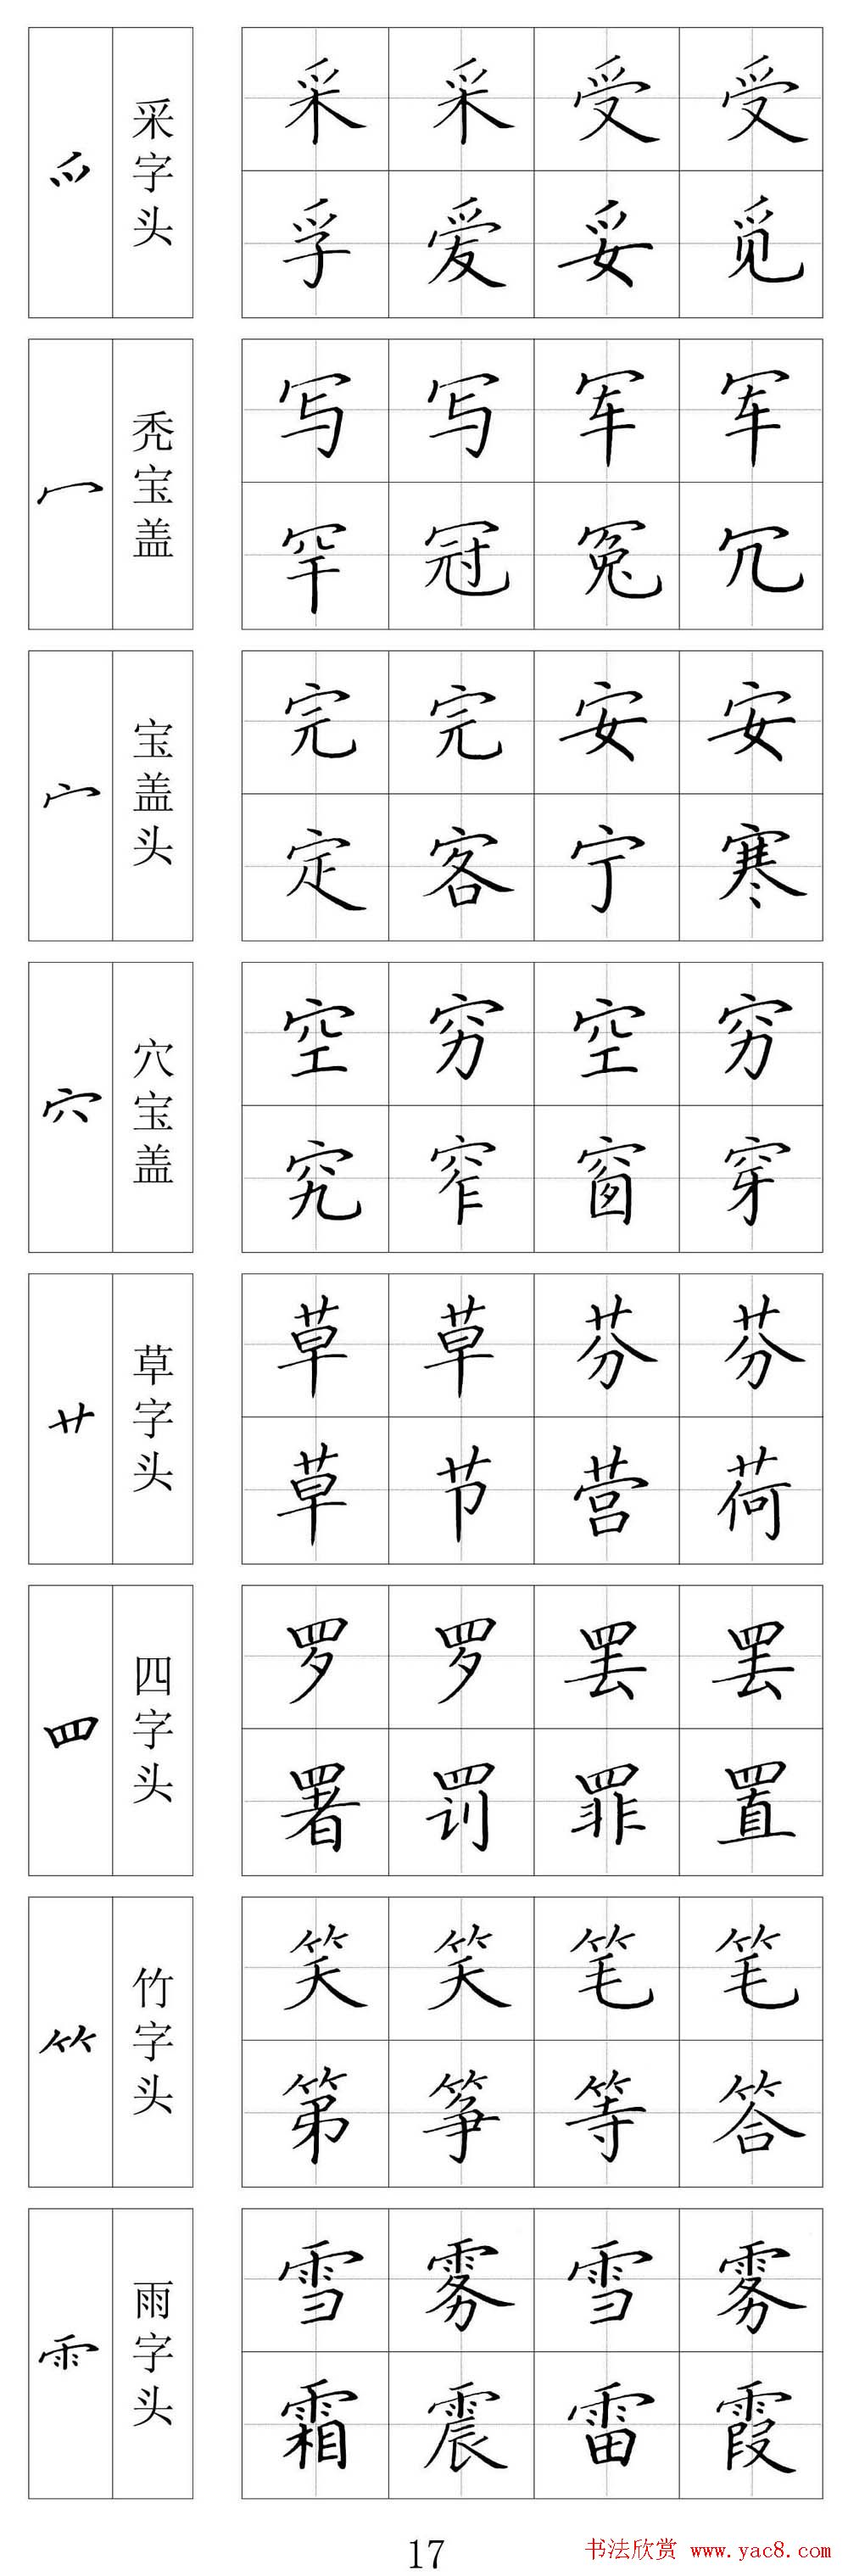 爫 采字头
采 采 受 受
孚 爱 妥 觅
冖 秃宝盖
写 写 军 军
罕 冠 冤 冗
宀 宝盖头
完 完 安 安
定 客 宁 寒
穴 穴宝盖
空 穷 空 穷
究 窄 窗 穿
艹 草字头
草 草 芬 芬
草 节 营 荷
罒 四字头
罗 罗 罢 罢
署 罚 罪 置
⺮ 竹字头
笑 笑 笔 笔
第 筝 等 答
⻗ 雨字头
雪 雾 雪 雾
霜 震 雷 霞
17
书法欣赏 www.yac8.com